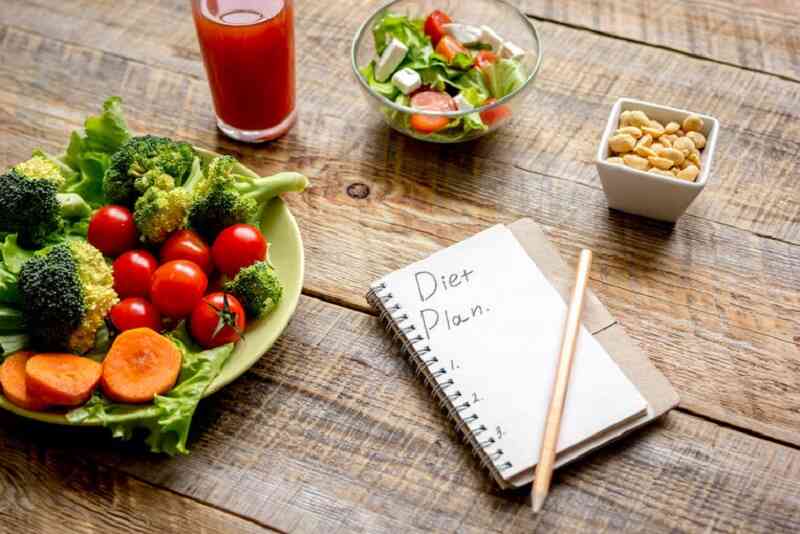 Diet
Plan.
1.
2.
3.